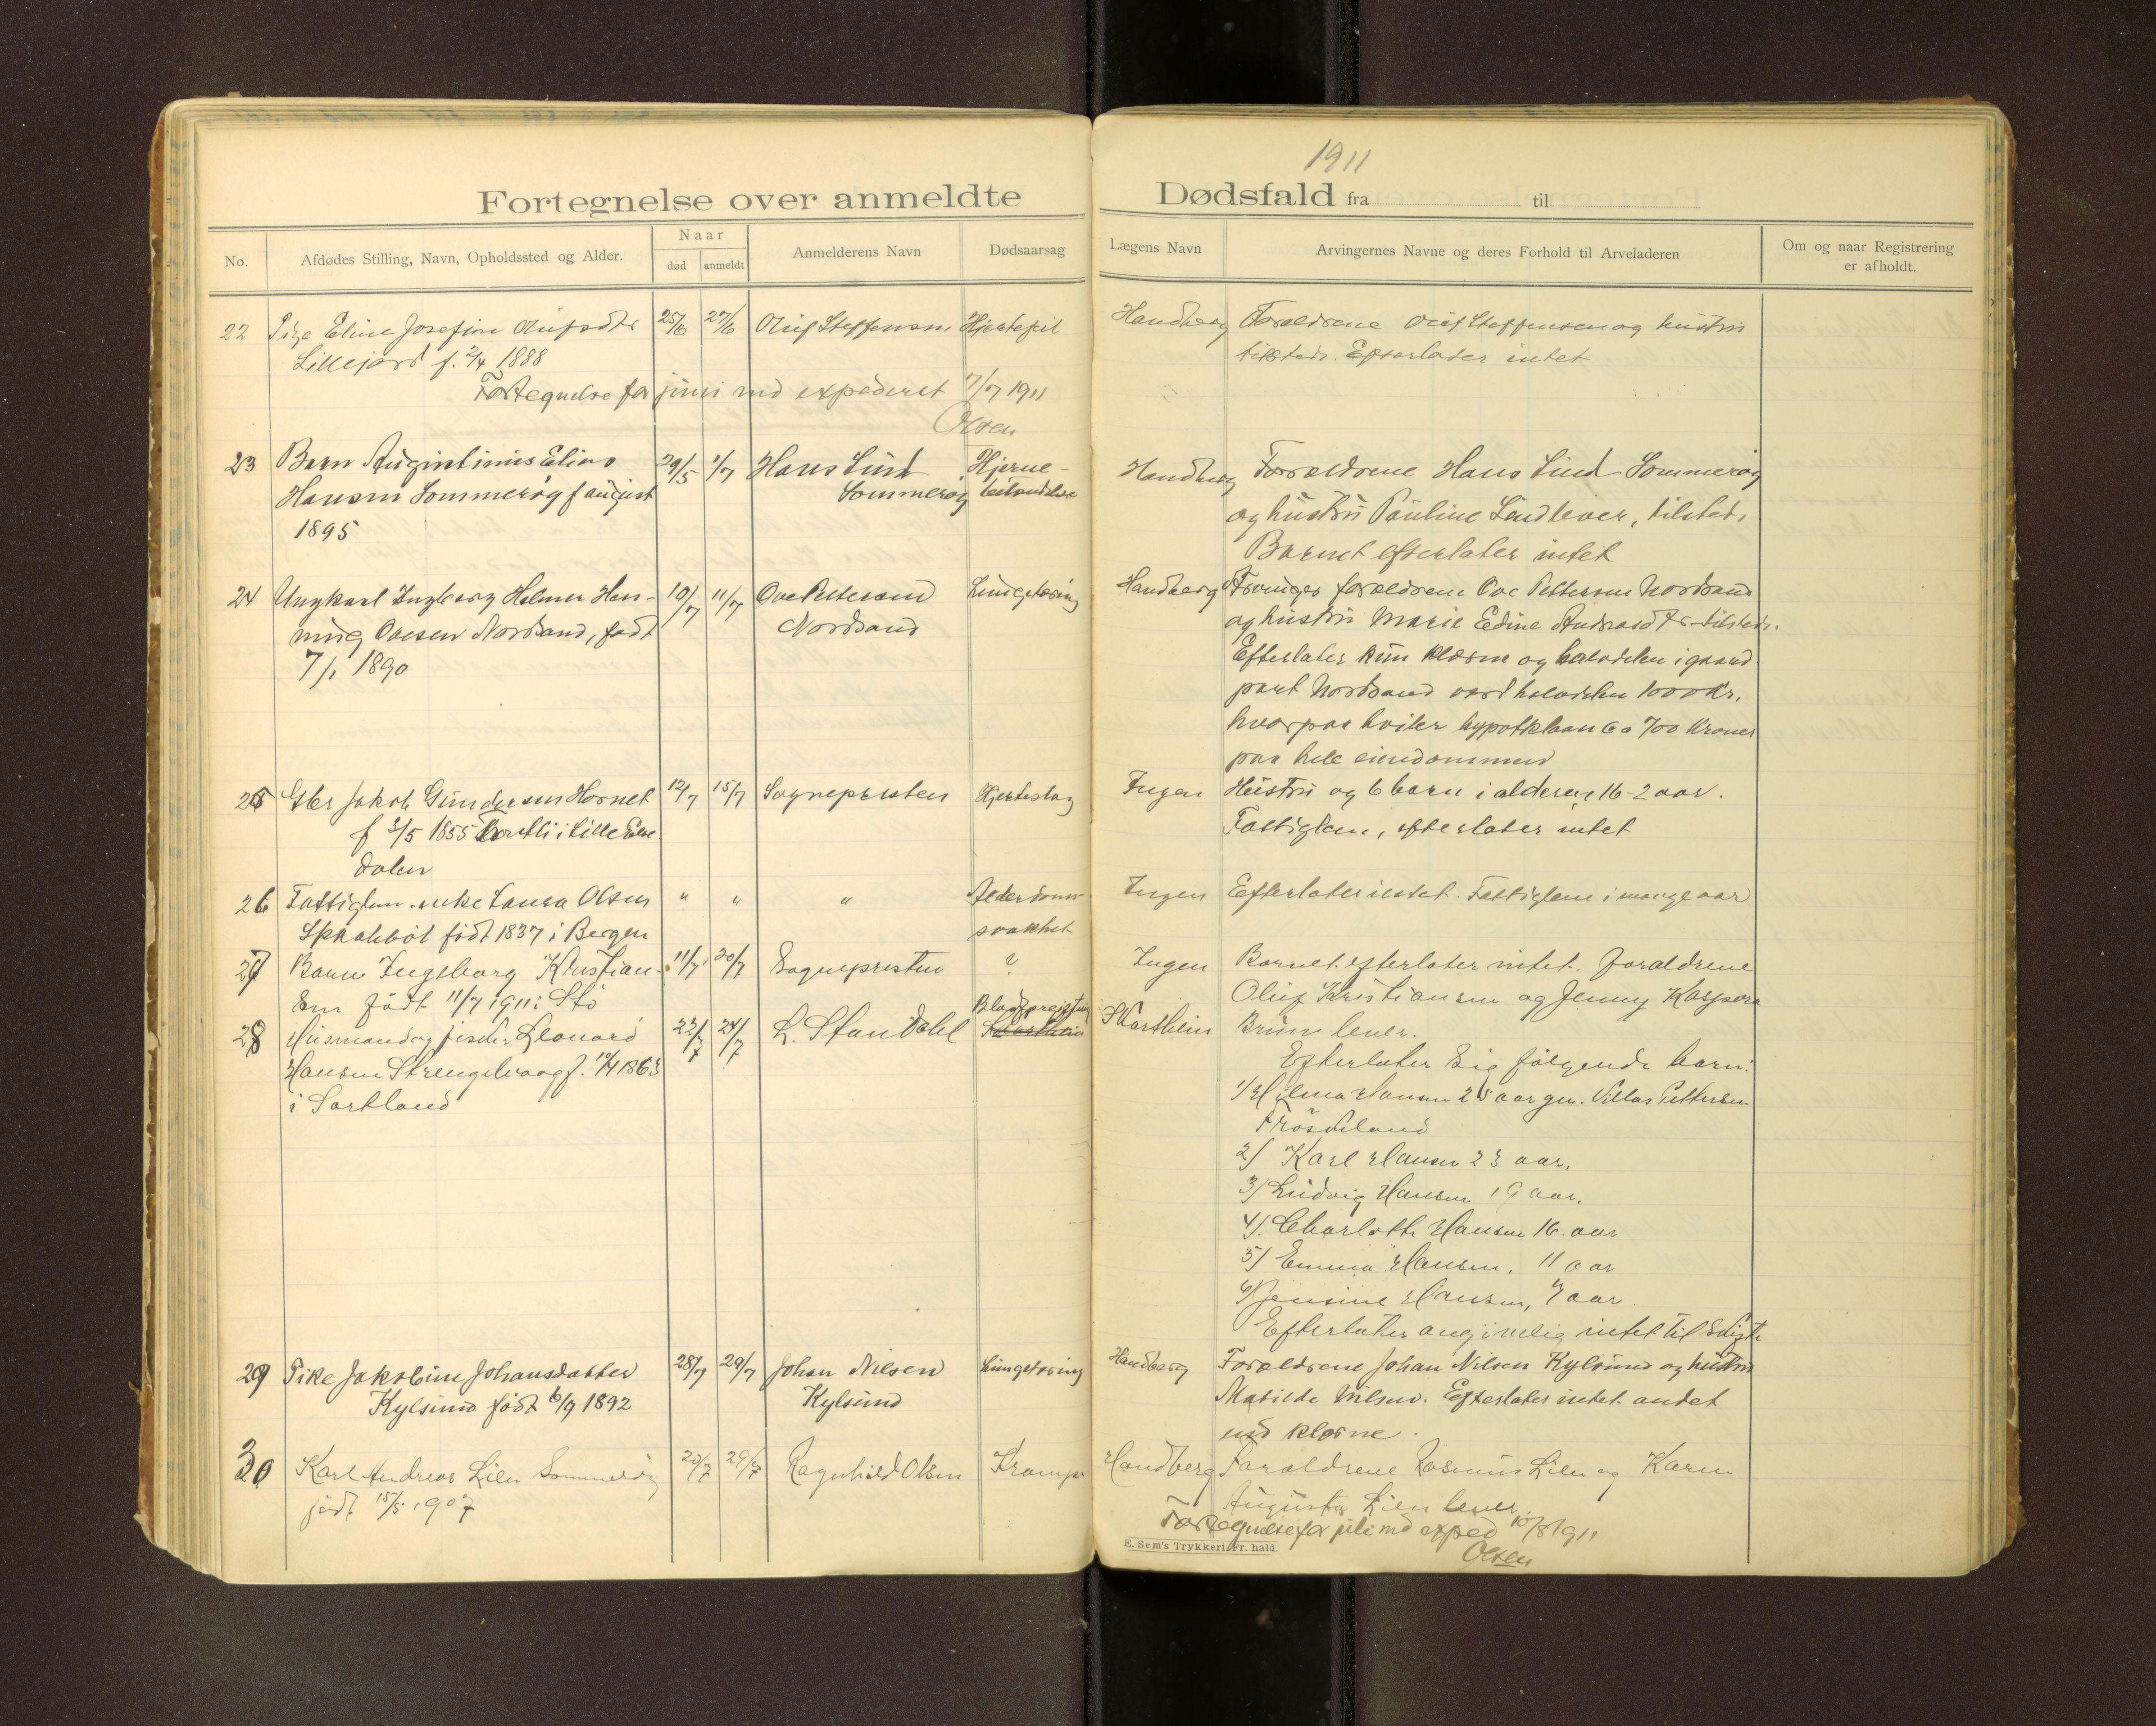 1911
Fortegnelse over anmeldte Dødsfald fra til
No.
Afdødes Stilling, Navn, Opholdssted og Alder.
Naar
død
anmeldt
Anmelderens Navn
Dødsaarsag
Lægens Navn
Arvingernes Navne og deres Forhold til Arveladeren
Om og naar Registrering
er afholdt.
22 Pige Eline Josefine Olufsdtr 25/6 27/6 Oluf Steffensen Hjertefeil Handberg Forældrene Oluf Steffensen og hustru
Lillejord f. 2/4 1888 tilsteds. Efterlater intet
Fortegnelse for juni md expederet 7/7 1911
Olsen
23 Barn Augustinius Elias 29/5 1/7 Hans Lind Hjerne- Handberg Forældrene Hans Lind Sommerøy
Hansen Sommerøy f august Sommerøy betændelse og hustru Pauline Lind lever, tilsteds
1895 Barnet efterlater intet
24 Ungkarl Ingberg Helmer Hen- 10/7 11/7 Ove Pettersen Lungetæring Handberg Arvinger forældrene Ove Pettersen Nordsand
ning Ovesen Nordsand, født Nordsand og hustru Marie Edine Andreasdtr tilsteds.
7/1 1890 Efterlater kun klærne og halvdelen i gaard
part Nordsand værd halvdelen 1000 Kr,
hvorpaa hviler hypotklaan ca 700 Kroner
paa hele eiendommen
25 Jakob Gundersen Hornet 12/7 15/7 Sognepresten Hjerteslag Ingen Hustru og 6 barn i alderen 16-2 aar.
f 3/5 1855 i Lille Elve Fattiglem, efterlater intet
dalen
26 Fattiglem enke Laura Olsen " " " Alderdoms- Ingen Efterlater intet. Fattiglem i mange aar
født 1837 i Bergen svakhet
27 Barn Ingeborg Kristian- 11/7 20/7 Sognepresten ? Ingen Barnet efterlater intet. Forældrene
sen født 11/7 1911 i Stø Oluf Kristiansen og Jenny Kaspara
28 Husmand og fisker Leonard 22/7 24/7 L. Standahl Blodforgiftning Skartheim Brun lever.
Hansen Strengelvaag f. 1863 Efterlater sig følgende barn:
i Sortland 1/ Hilma Hansen 25 aar gm. Villas Pettersen
Frøskeland
2/ Karl Hansen 23 aar.
3/ Ludvig Hansen 19 aar.
4/ Charlotte Hansen 16 aar
5/ Emma Hansen. 11 aar
6/ Jensine Hansen, 7 aar.
Efterlater angivelig intet til skifte
29 Pike Jakobine Johansdatter 28/7 29/7 Johan Nilsen Lungetæring Handberg Forældrene Johan Nilsen Kylsund og hustru
Kylsund født 6/9 1892 Kylsund Matilde Nilsen. Efterlater intet andet
end klærne.
30 Karl Andreas Lien Sommerøy 29/7 Ragnhild Olsen Krampe Handberg Forældrene Rasmus Lien og Karen
født 15/5 1907 Augusta Lien lever.
Fortegnelse for juli md exped 10/8 1911
E. Sem's Trykkeri, Fr. hald.
Olsen